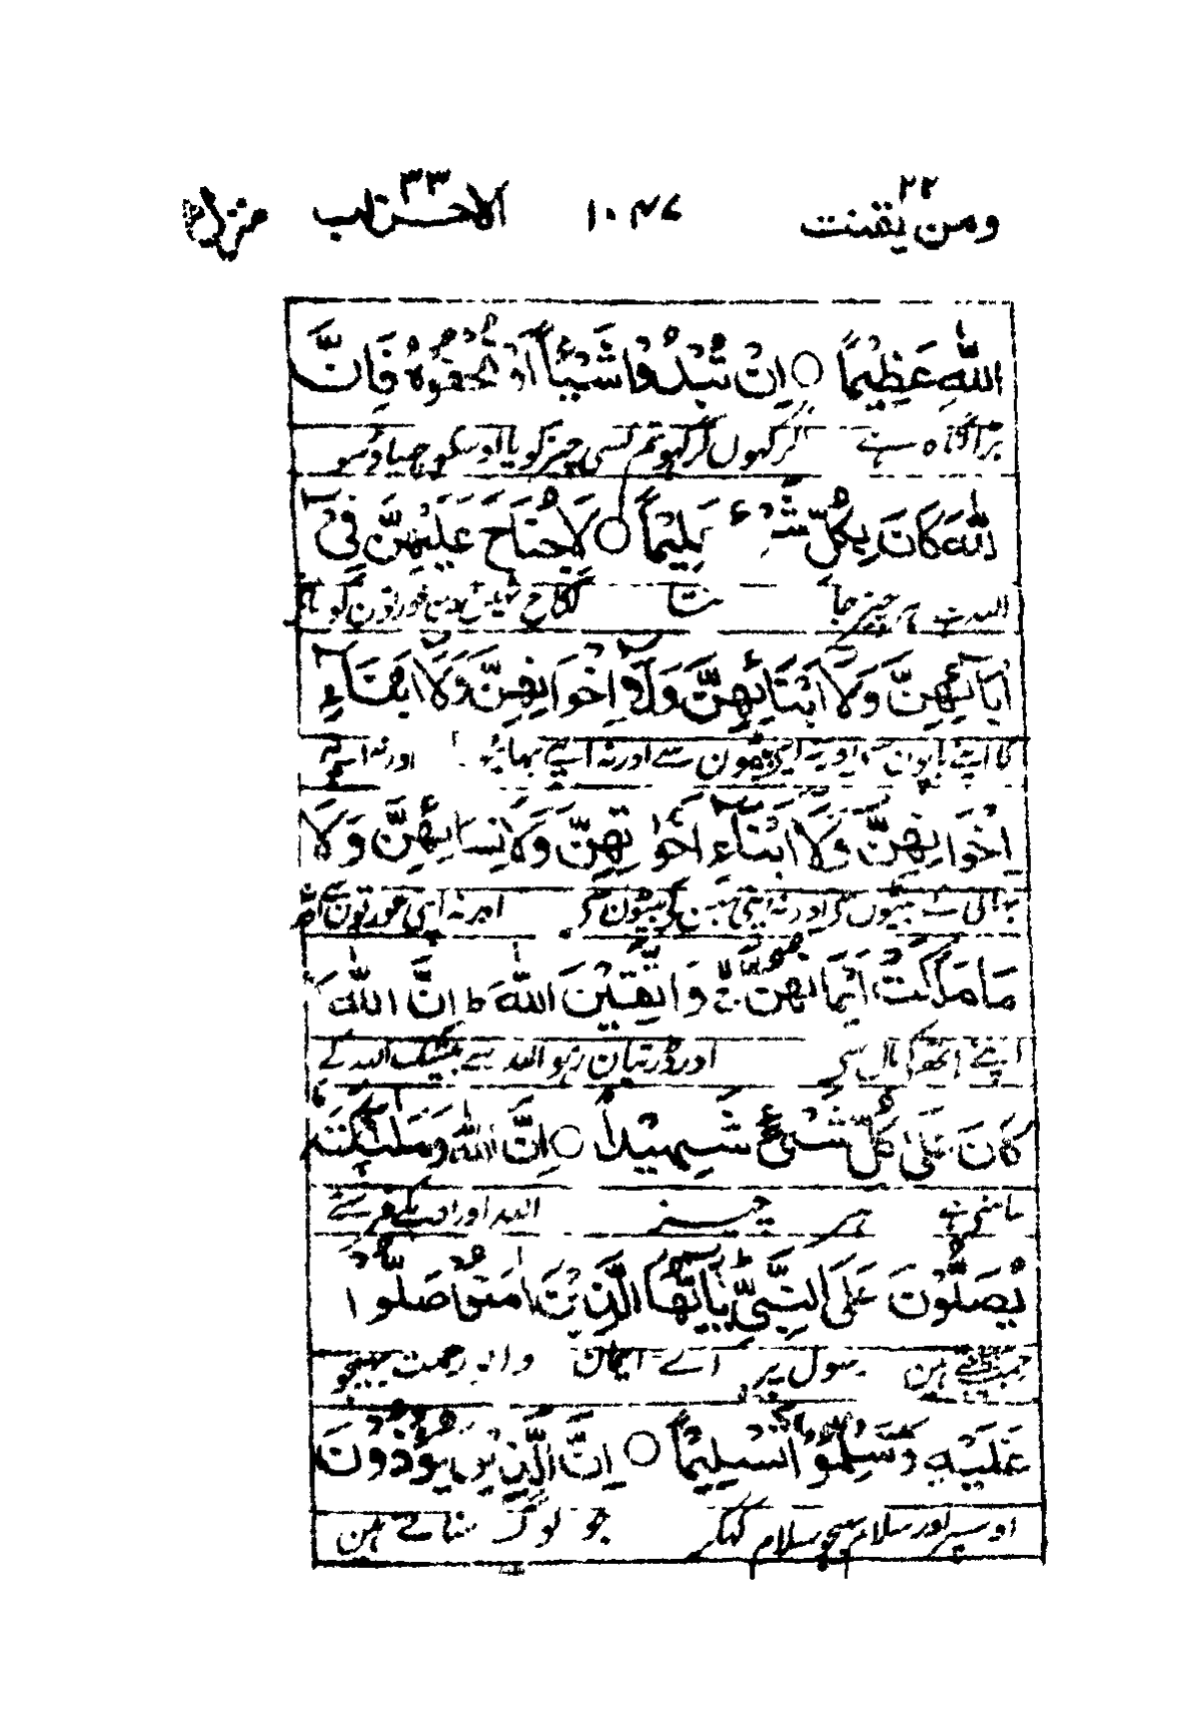 ومن یقنت ۲۲ ۱۰۴۷ الاحزاب ۳۳ منزل
اللّٰهِ عَظِيْمًا ○ اِنْ تُبْدُوْا شَيْـًٔا اَوْ تُخْفُوْهُ فَاِنَّ
بڑا گناہ ہے اگر کہوں کر کہو تم کسی چیز کو یا اوسکو چھپاؤ سو
اللّٰهَ كَانَ بِكُلِّ شَیْءٍ عَلِيْمًا ○ لَا جُنَاحَ عَلَيْهِنَّ فِیْۤ
اللہ ہے ہر چیز جا نتا گناہ نہیں ان عورتون کو
اٰبَآئِهِنَّ وَلَاۤ اَبْنَآئِهِنَّ وَلَاۤ اِخْوَانِهِنَّ وَلَاۤ اَبْنَآءِ
اپنے باپون سے اور نہ اپنے بیٹون سے اور نہ اپنے بہائیو اور نہ اپنے
اِخْوَانِهِنَّ وَلَاۤ اَبْنَآءِ اَخَوٰتِهِنَّ وَلَا نِسَآئِهِنَّ وَلَا
بیٹوں سے اور نہ اپنی بہن کے بیٹون سے اور نہ اپنی عورتون سے
مَا مَلَكَتْ اَيْمَانُهُنَّ ۚ وَاتَّقِيْنَ اللّٰهَ ط اِنَّ اللّٰهَ
اپنے ہاتھ کے مال سے اور ڈرتیان رہو اللہ سے بیشک اللہ کے
كَانَ عَلٰى كُلِّ شَیْءٍ شَهِيْدًا ○ اِنَّ اللّٰهَ وَمَلٰٓئِكَتَهٗ
سامنے ہے ہر چیز اللہ اور اسکے فرشتے
يُصَلُّوْنَ عَلَى النَّبِیِّ ط يٰۤاَيُّهَا الَّذِيْنَ اٰمَنُوْا صَلُّوْا
رحمت بھیجتے ہین رسول پر اے ایمان والو رحمت بھیجو
عَلَيْهِ وَسَلِّمُوْا تَسْلِيْمًا ○ اِنَّ الَّذِيْنَ يُؤْذُوْنَ
اوسپر اور سلام بھیجو سلام کہکر جو لوگ ستاتے ہین